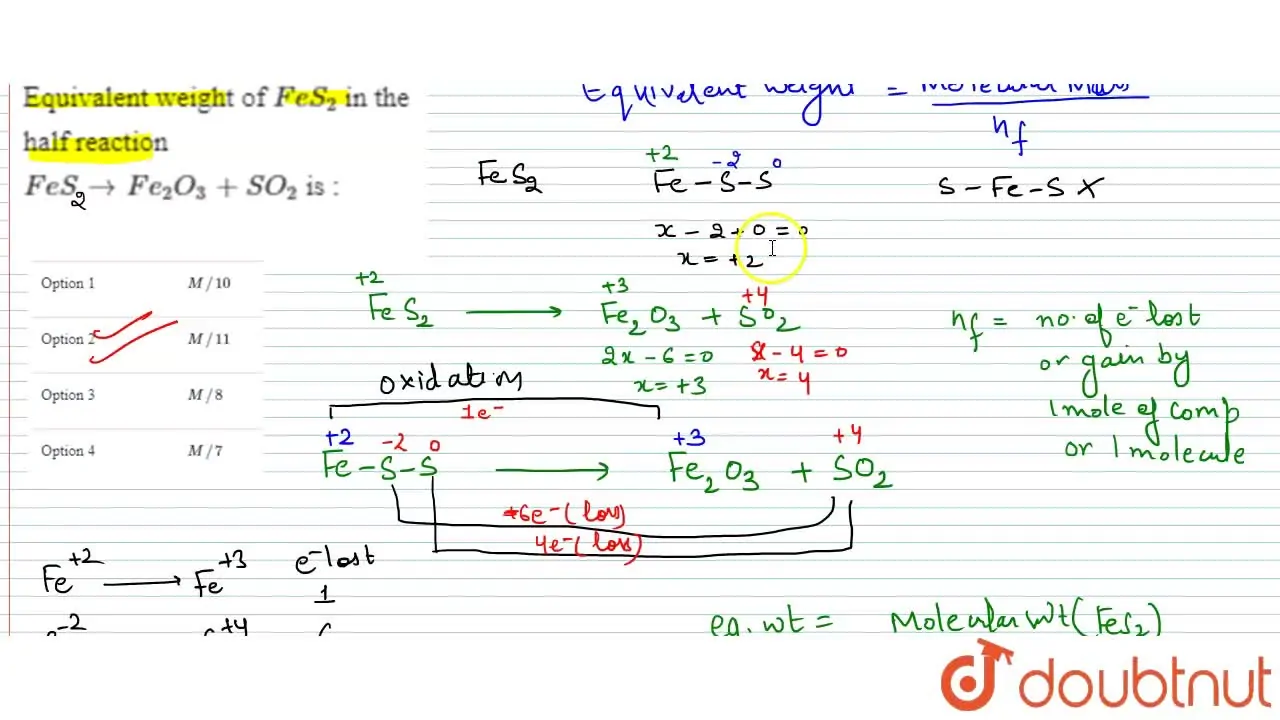 Equivalent weight of FeS₂ in the
half reaction
FeS₂ → Fe₂O₃ + SO₂ is :
Option 1 M/10
Option 2 M/11
Option 3 M/8
Option 4 M/7
Equivalent weight = Molecular Mass
nf
FeS₂
+2 -2 0
Fe-S-S
S-Fe-S X
x - 2 + 0 = 0
x = +2
+2 +3 +4
FeS₂ → Fe₂O₃ + SO₂
2x - 6 = 0 x - 4 = 0
x = +3 x = 4
nf = no. of e⁻ lost
or gain by
1 mole of comp
or 1 molecule
oxidation
1e⁻
+2 -2 0 +3 +4
Fe-S-S → Fe₂O₃ + SO₂
6e⁻ (loss)
4e⁻ (loss)
Fe⁺² → Fe⁺³ e⁻ lost
1
-2 +4
eq. wt = Molecular wt (FeS₂)
doubtnut